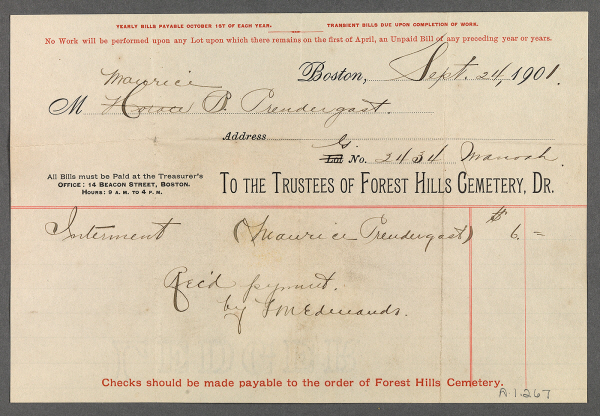 YEARLY BILLS PAYABLE OCTOBER 1ST OF EACH YEAR. TRANSIENT BILLS DUE UPON COMPLETION OF WORK.
No Work will be performed upon any Lot upon which there remains on the first of April, an Unpaid Bill of any preceding year or years.
Boston, Sept. 24, 1901.
Maurice
M Horace B. Prendergast.
Address
G.
Lot No. 2434
All Bills must be Paid at the Treasurer's
OFFICE: 14 BEACON STREET, BOSTON.
HOURS: 9 A. M. TO 4 P. M.
TO THE TRUSTEES OF FOREST HILLS CEMETERY, DR.
Interment (Maurice Prendergast) $6.=
Rec'd paymnt.
by
Checks should be made payable to the order of Forest Hills Cemetery.
A.1.267